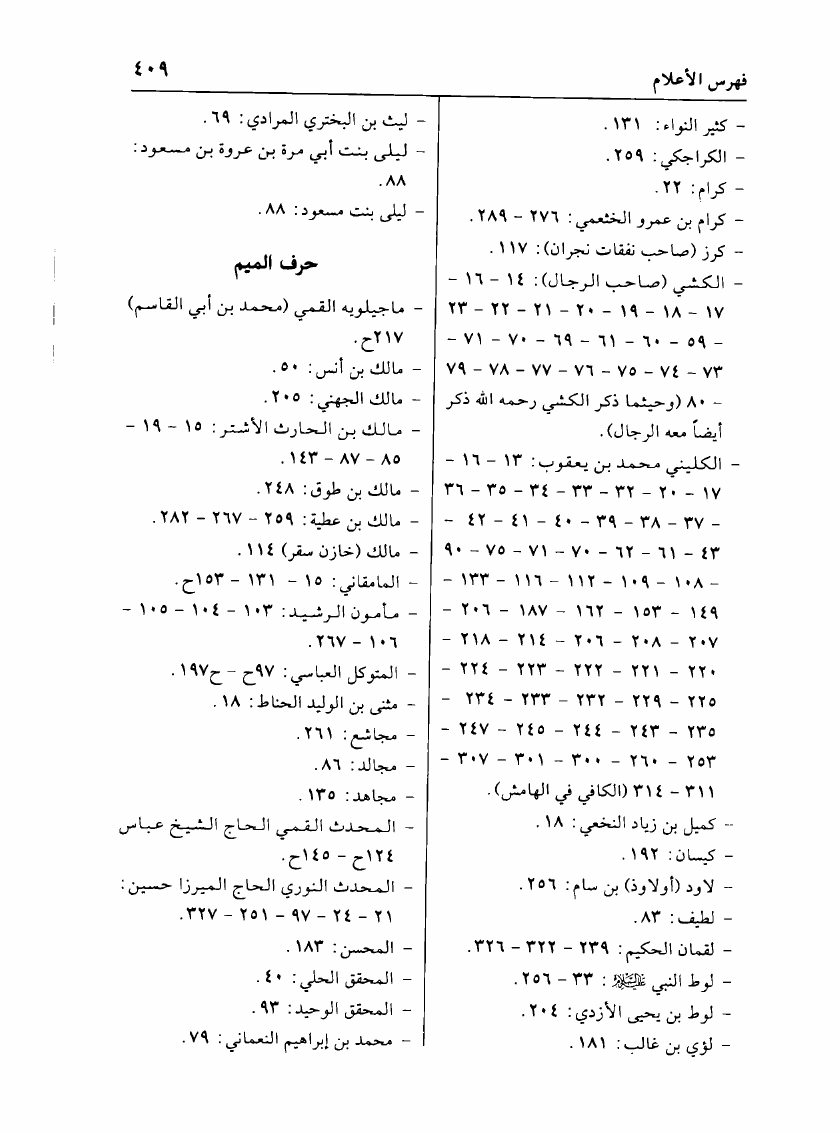 فهرس الأعلام
٤٠٩
- كثير النواء: ١٣١.
- الكراجكي: ٢٥٩.
- كرام: ٢٢.
- كرام بن عمرو الخثعمي: ٢٧٦ - ٢٨٩.
- كرز (صاحب نفقات نجران): ١١٧.
- الكشي (صاحب الرجال): ١٤ - ١٦ -
١٧ - ١٨ - ١٩ - ٢٠ - ٢١ - ٢٢ - ٢٣
- ٥٩ - ٦٠ - ٦١ - ٦٩ - ٧٠ - ٧١ -
٧٣ - ٧٤ - ٧٥ - ٧٦ - ٧٧ - ٧٨ - ٧٩
- ٨٠ (وحيثما ذكر الكشي رحمه الله ذكر
أيضاً معه الرجال).
- الكليني محمد بن يعقوب: ١٣ - ١٦ -
١٧ - ٢٠ - ٣٢ - ٣٣ - ٣٤ - ٣٥ - ٣٦
- ٣٧ - ٣٨ - ٣٩ - ٤٠ - ٤١ - ٤٢ -
٤٣ - ٦١ - ٦٢ - ٧٠ - ٧١ - ٧٥ - ٩٠
- ١٠٨ - ١٠٩ - ١١٢ - ١١٦ - ١٣٣ -
١٤٩ - ١٥٣ - ١٦٢ - ١٨٧ - ٢٠٦ -
٢٠٧ - ٢٠٨ - ٢٠٦ - ٢١٤ - ٢١٨ -
٢٢٠ - ٢٢١ - ٢٢٢ - ٢٢٣ - ٢٢٤ -
٢٢٥ - ٢٢٩ - ٢٣٢ - ٢٣٣ - ٢٣٤ -
٢٣٥ - ٢٤٣ - ٢٤٤ - ٢٤٥ - ٢٤٧ -
٢٥٣ - ٢٦٠ - ٣٠٠ - ٣٠١ - ٣٠٧ -
٣١١ - ٣١٤ (الكافي في الهامش).
- كميل بن زياد النخعي: ١٨.
- كيسان: ١٩٢.
- لاود (أولاوذ) بن سام: ٢٥٦.
- لطيف: ٨٣.
- لقمان الحكيم: ٢٣٩ - ٣٢٢ - ٣٢٦.
- لوط النبي عليه السلام: ٣٣ - ٢٥٦.
- لوط بن يحيى الأزدي: ٢٠٤.
- لؤي بن غالب: ١٨١.
- ليث بن البختري المرادي: ٦٩.
- ليلى بنت أبي مرة بن عروة بن مسعود:
٨٨.
- ليلى بنت مسعود: ٨٨.
حرف الميم
- ماجيلويه القمي (محمد بن أبي القاسم)
٢١٧ح.
- مالك بن أنس: ٥٠.
- مالك الجهني: ٢٠٥.
- مالك بن الحارث الأشتر: ١٥ - ١٩ -
٨٥ - ٨٧ - ١٤٣.
- مالك بن طوق: ٢٤٨.
- مالك بن عطية: ٢٥٩ - ٢٦٧ - ٢٨٢.
- مالك (خازن سقر) ١١٤.
- المامقاني: ١٥ - ١٣١ - ١٥٣ح.
- مأمون الرشيد: ١٠٣ - ١٠٤ - ١٠٥ -
١٠٦ - ٢٦٧.
- المتوكل العباسي: ٩٧ح - ح١٩٧.
- مثنى بن الوليد الحناط: ١٨.
- مجاشع: ٢٦١.
- مجالد: ٨٦.
- مجاهد: ١٣٥.
- المحدث القمي الحاج الشيخ عباس
١٢٤ح - ١٤٥ح.
- المحدث النوري الحاج الميرزا حسين:
٢١ - ٢٤ - ٩٧ - ٢٥١ - ٣٢٧.
- المحسن: ١٨٣.
- المحقق الحلي: ٤٠.
- المحقق الوحيد: ٩٣.
- محمد بن إبراهيم النعماني: ٧٩.